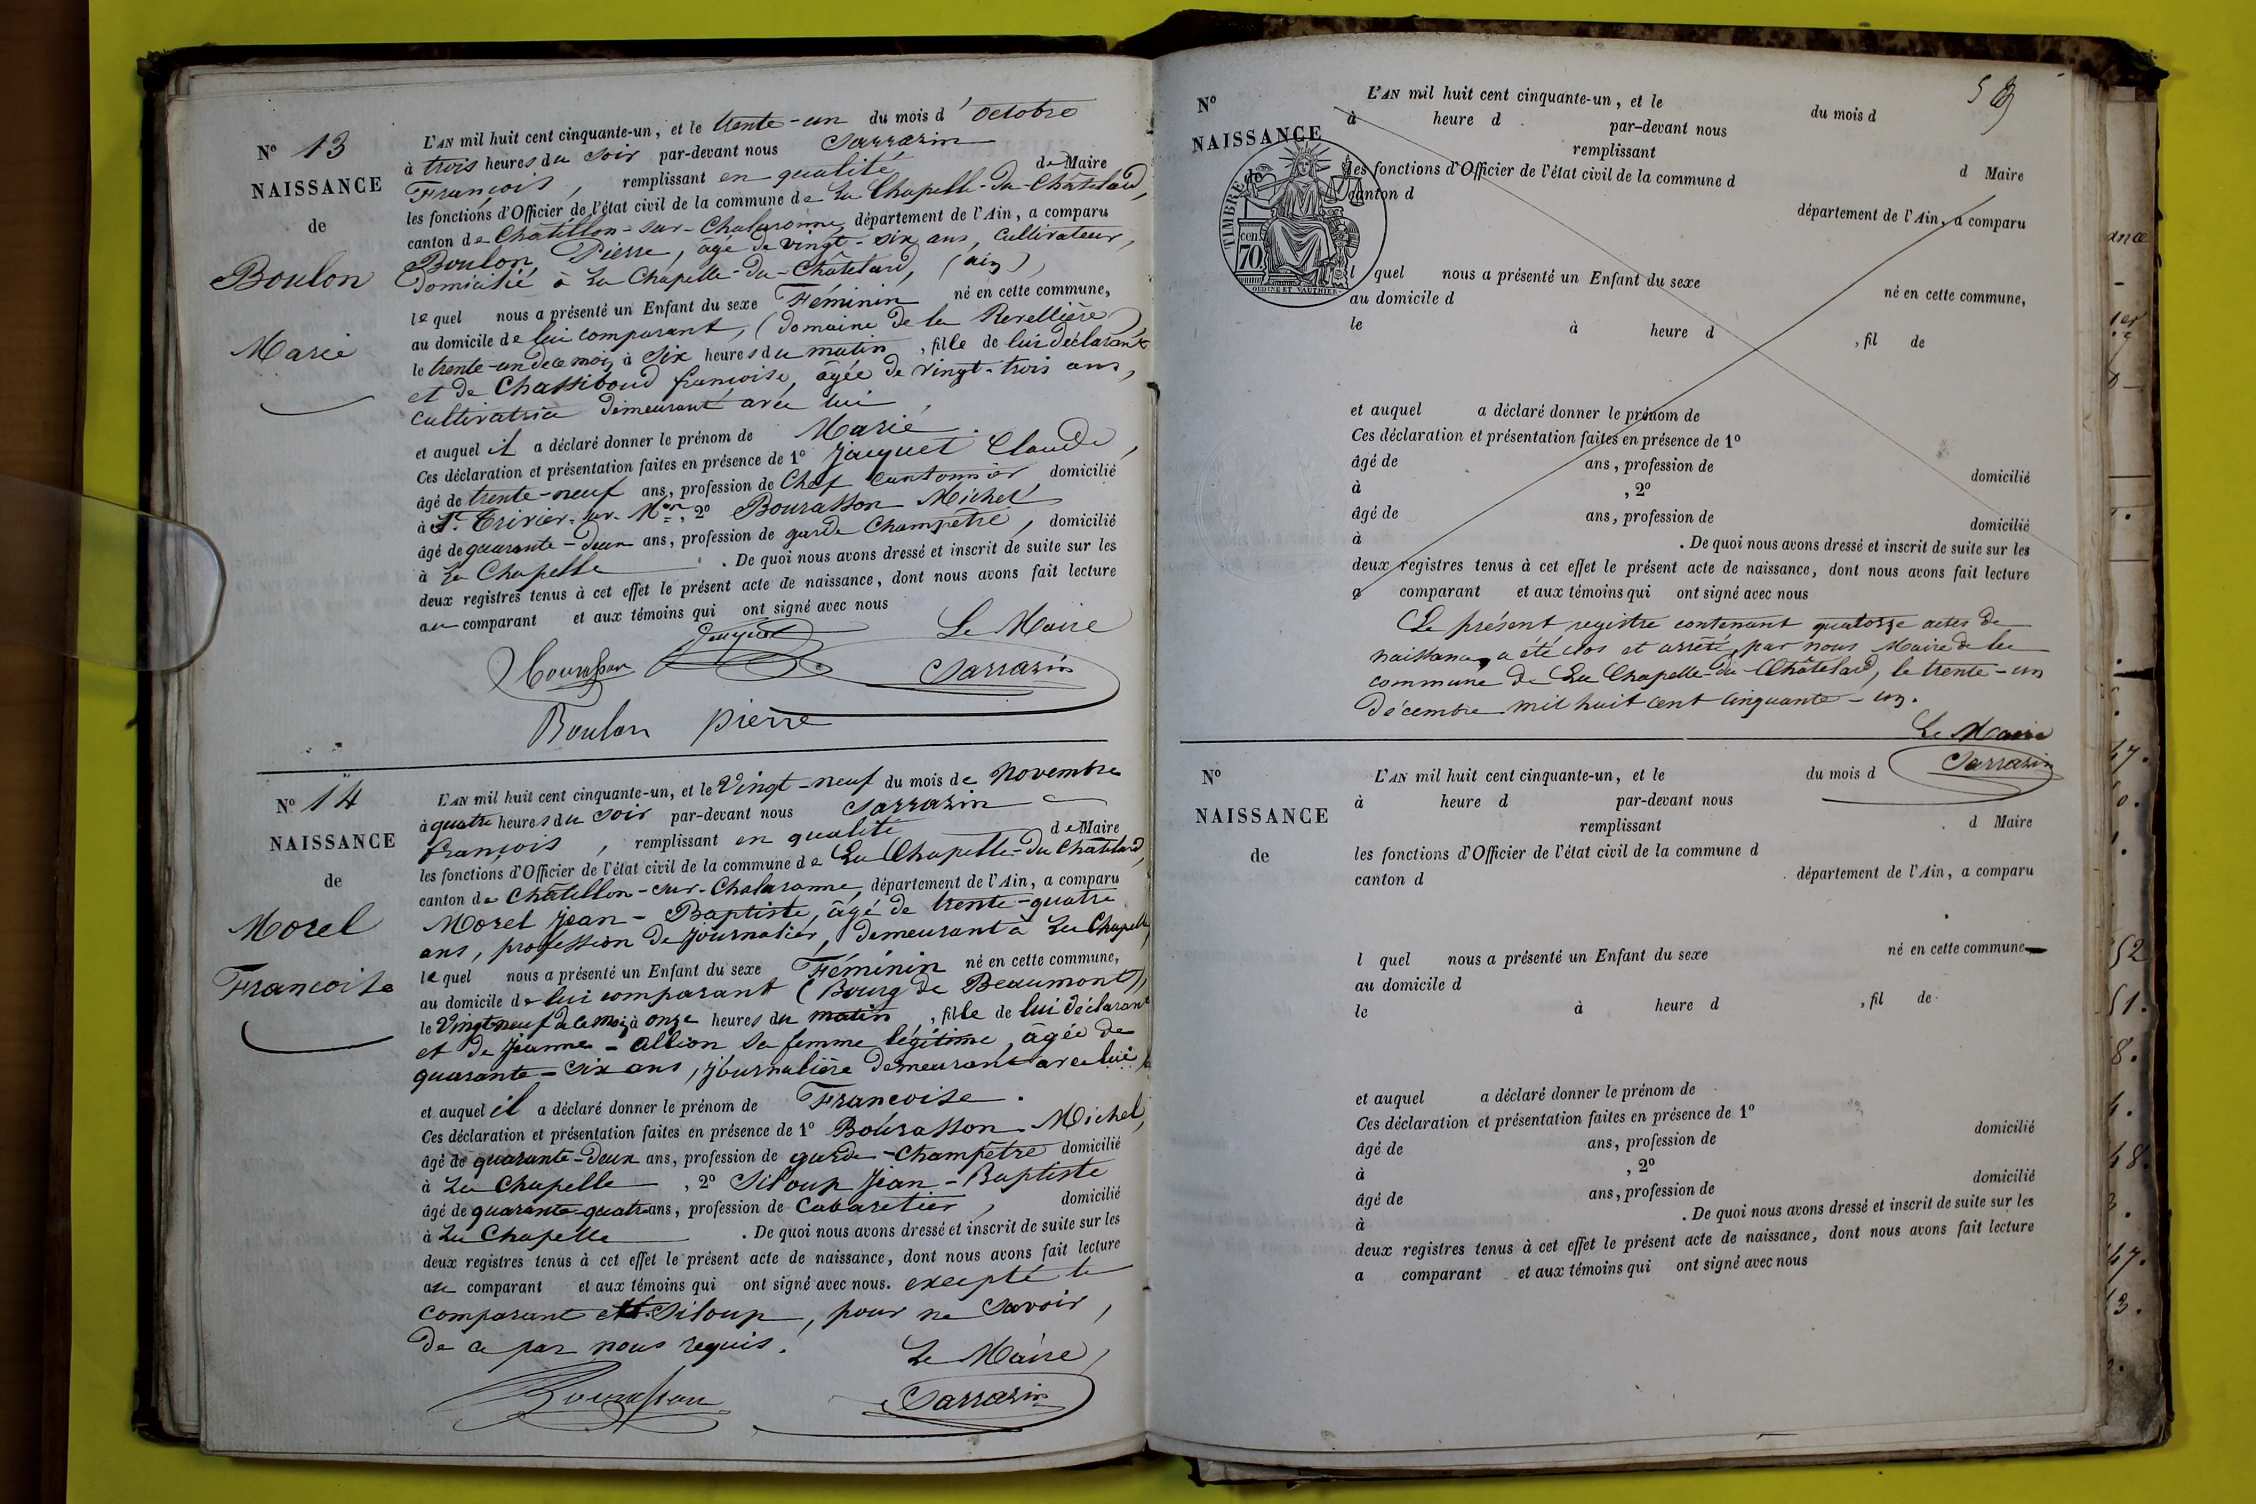 N° 13
NAISSANCE
de
Boulon
Marie
L'AN mil huit cent cinquante-un, et le trente-un du mois d'octobre
à trois heures du soir par-devant nous Sarrazin
François, remplissant en qualité de Maire
les fonctions d'Officier de l'état civil de la commune de La Chapelle-du-Châtelard,
canton de Châtillon-sur-Chalaronne, département de l'Ain, a comparu
Boulon Pierre, âgé de vingt-six ans, Cultivateur,
Domicilié à La Chapelle-du-Châtelard, (ain),
lequel nous a présenté un Enfant du sexe Féminin né en cette commune,
au domicile de lui comparant, (domaine de la Revellière)
le trente-un de ce mois, à Six heures du matin, fille de lui déclarant
et de Chassiboud françoise, âgée de vingt-trois ans,
cultivatrice demeurant avec lui,
et auquel il a déclaré donner le prénom de Marie.
Ces déclaration et présentation faites en présence de 1° Jacquet Claude,
âgé de trente-neuf ans, profession de Chef Cantonnier, domicilié
à St Trivier-sur-Mon, 2° Bourasson Michel
âgé de quarante-deux ans, profession de garde Champêtre, domicilié
à La Chapelle. De quoi nous avons dressé et inscrit de suite sur les
deux registres tenus à cet effet le présent acte de naissance, dont nous avons fait lecture
au comparant et aux témoins qui ont signé avec nous
Jacquet Le Maire
Bourasson Sarrazin
Boulon pierre
N° 14
NAISSANCE
de
Morel
Francoise
L'AN mil huit cent cinquante-un, et le Vingt-neuf du mois de Novembre
à quatre heures du soir par-devant nous Sarrazin
françois, remplissant en qualité de Maire
les fonctions d'Officier de l'état civil de la commune de La Chapelle-du Châtelard,
canton de Châtillon-sur-Chalaronne, département de l'Ain, a comparu
Morel Jean-Baptiste, âgé de trente-quatre
ans, profession de Journalier, demeurant à La Chapelle,
lequel nous a présenté un Enfant du sexe Féminin né en cette commune,
au domicile de lui comparant (Bourg de Beaumont),
le Vingt-neuf de ce mois, à onze heures du matin, fille de lui déclarant
et de Jeanne-Allion sa femme légitime, âgée de
quarante-six ans, journalière demeurant avec lui,
et auquel il a déclaré donner le prénom de Francoise.
Ces déclaration et présentation faites en présence de 1° Bourasson Michel,
âgé de quarante-deux ans, profession de garde-champêtre domicilié
à La Chapelle, 2° Siloup Jean-Baptiste
âgé de quarante-quatre ans, profession de Cabaretier, domicilié
à La Chapelle. De quoi nous avons dressé et inscrit de suite sur les
deux registres tenus à cet effet le présent acte de naissance, dont nous avons fait lecture
au comparant et aux témoins qui ont signé avec nous. excepté le
comparant et Siloup, pour ne Savoir,
de ce par nous requis.
Le Maire,
Bourasson Sarrazin
N°
NAISSANCE
de
TIMBRE
70
cen.
OUDINÉ ET VAUTHIER
L'AN mil huit cent cinquante-un, et le du mois d
à heure d par-devant nous
remplissant d Maire
les fonctions d'Officier de l'état civil de la commune d
canton d département de l'Ain, a comparu
l quel nous a présenté un Enfant du sexe né en cette commune,
au domicile d
le à heure d , fil de
et auquel a déclaré donner le prénom de
Ces déclaration et présentation faites en présence de 1°
âgé de ans, profession de domicilié
à , 2°
âgé de ans, profession de domicilié
à . De quoi nous avons dressé et inscrit de suite sur les
deux registres tenus à cet effet le présent acte de naissance, dont nous avons fait lecture
a comparant et aux témoins qui ont signé avec nous
Le présent registre contenant quatorze actes de
naissance, a été clos et arrêté, par nous Maire de la
commune de La Chapelle-du-Châtelard, le trente-un
Décembre mil huit cent cinquante-un.
Le Maire
Sarrazin
N°
NAISSANCE
de
L'AN mil huit cent cinquante-un, et le du mois d
à heure d par-devant nous
remplissant d Maire
les fonctions d'Officier de l'état civil de la commune d
canton d département de l'Ain, a comparu
l quel nous a présenté un Enfant du sexe né en cette commune
au domicile d
le à heure d , fil de
et auquel a déclaré donner le prénom de
Ces déclaration et présentation faites en présence de 1°
âgé de ans, profession de domicilié
à , 2°
âgé de ans, profession de domicilié
à . De quoi nous avons dressé et inscrit de suite sur les
deux registres tenus à cet effet le présent acte de naissance, dont nous avons fait lecture
a comparant et aux témoins qui ont signé avec nous